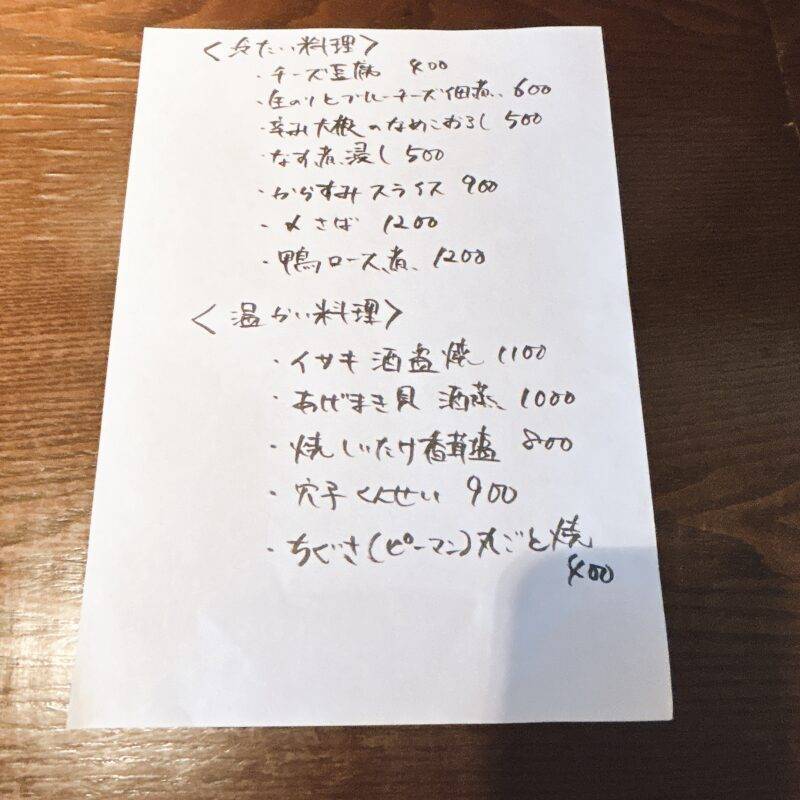 〈冷たい料理〉
・チーズ豆腐 400
・生のりとブルーチーズ佃煮 600
・辛み大根のなめこおろし 500
・なす煮浸し 500
・からすみスライス 900
・〆さば 1200
・鴨ロース煮 1200
〈温かい料理〉
・イサキ酒盗焼 1100
・あげまき貝 酒蒸 1000
・焼しいたけ香茸塩 800
・穴子くんせい 900
・ちぐさ(ピーマン)丸ごと焼
400